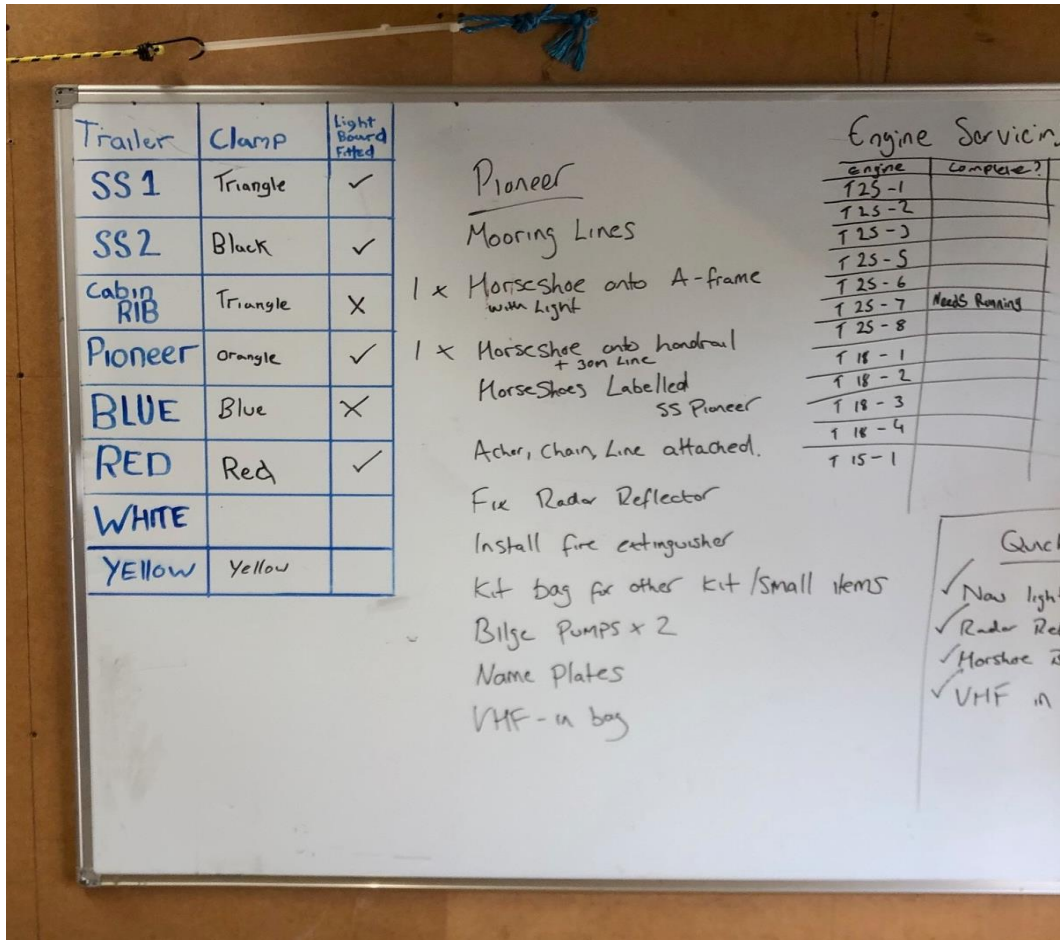 Trailer Clamp Light Board Fitted
SS 1 Triangle ✓
SS2 Black ✓
Cabin RIB Triangle X
Pioneer orangle ✓
BLUE Blue X
RED Red ✓
WHITE
YEllow Yellow
Pioneer
Mooring Lines
1 x Horseshoe onto A-frame
with Light
1 x Horseshoe onto handrail
+ 30m Line
HorseShoes Labelled
SS Pioneer
Acher, Chain, Line attached.
Fix Radar Reflector
Install fire extinguisher
Kit bag for other Kit / Small items
Bilge Pumps x 2
Name Plates
VHF - in bag
Engine Servicin
engine complete?
T 25 - 1
T 25 - 2
T 25 - 3
T 25 - 5
T 25 - 6
T 25 - 7 Needs Running
T 25 - 8
T 18 - 1
T 18 - 2
T 18 - 3
T 18 - 4
T 15 - 1
Quick
✓ Nav ligh
✓ Radar Re
✓ Horshoe
✓ VHF in